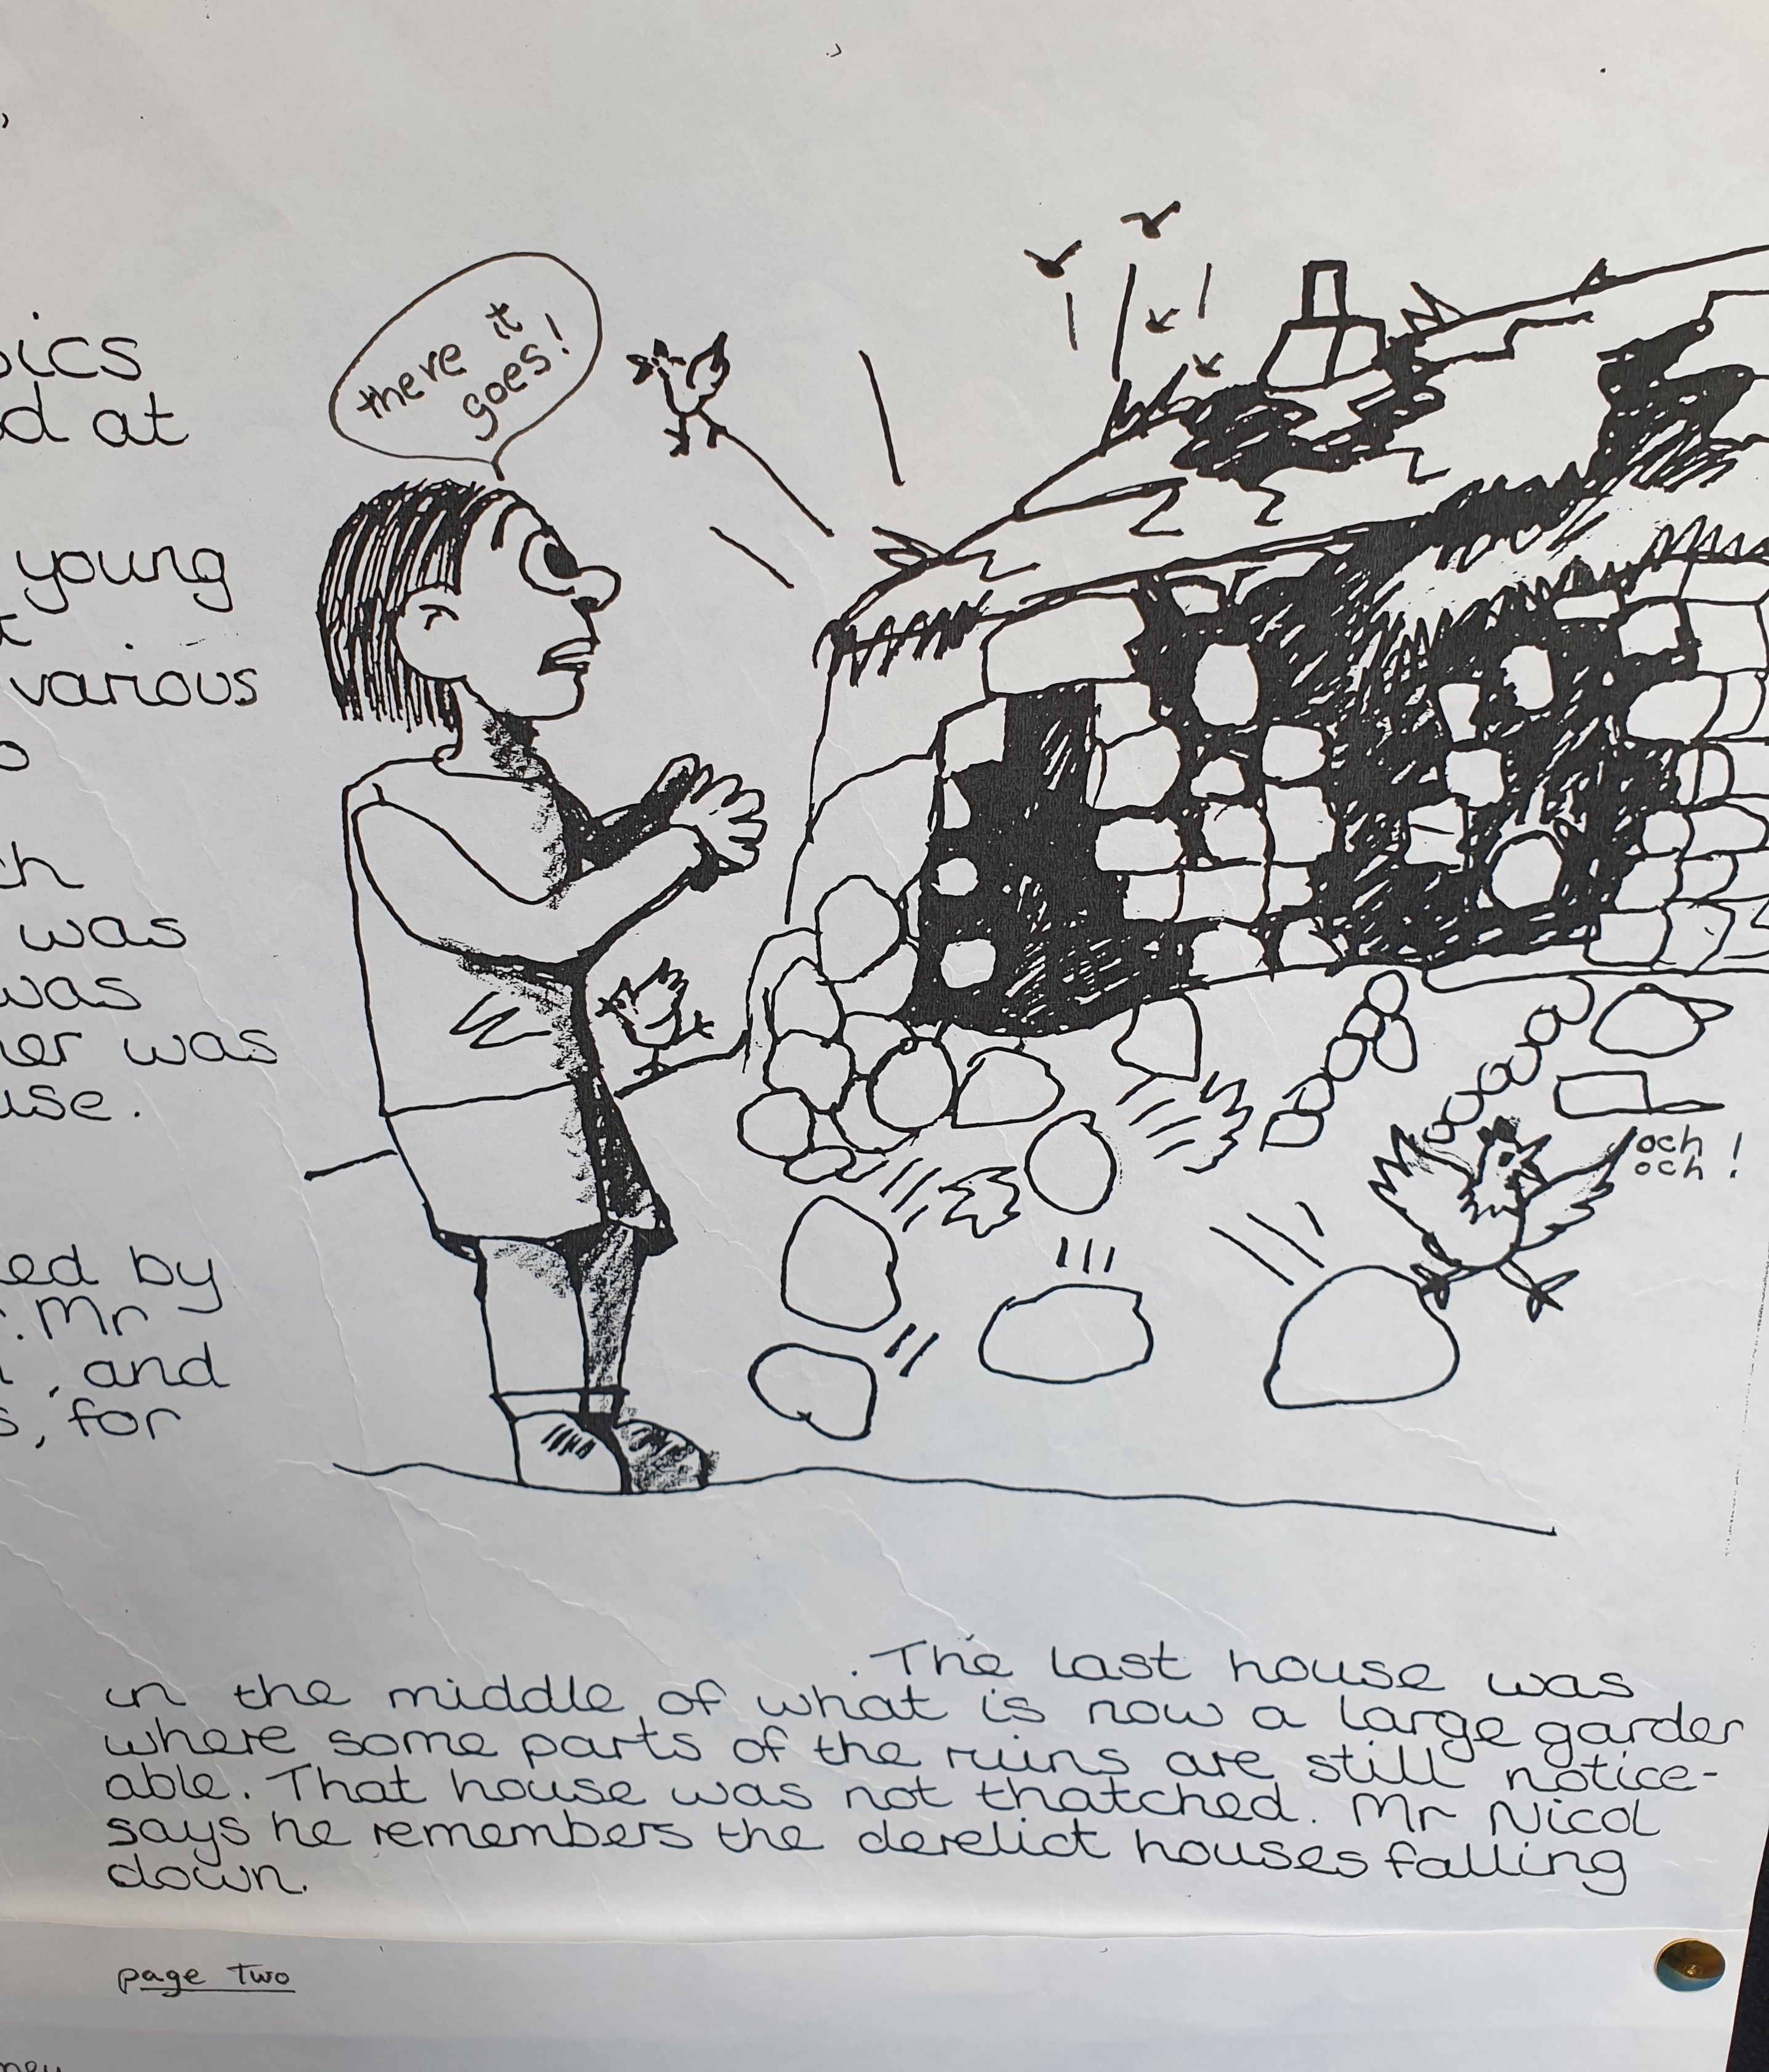 there it
goes!
at
young
various
was
was
was
by
Mr
, and
, for
och
och !
. The last house was
in the middle of what is now a large garden
where some parts of the ruins are still notice-
able. That house was not thatched. Mr Nicol
says he remembers the derelict houses falling
down.
page Two